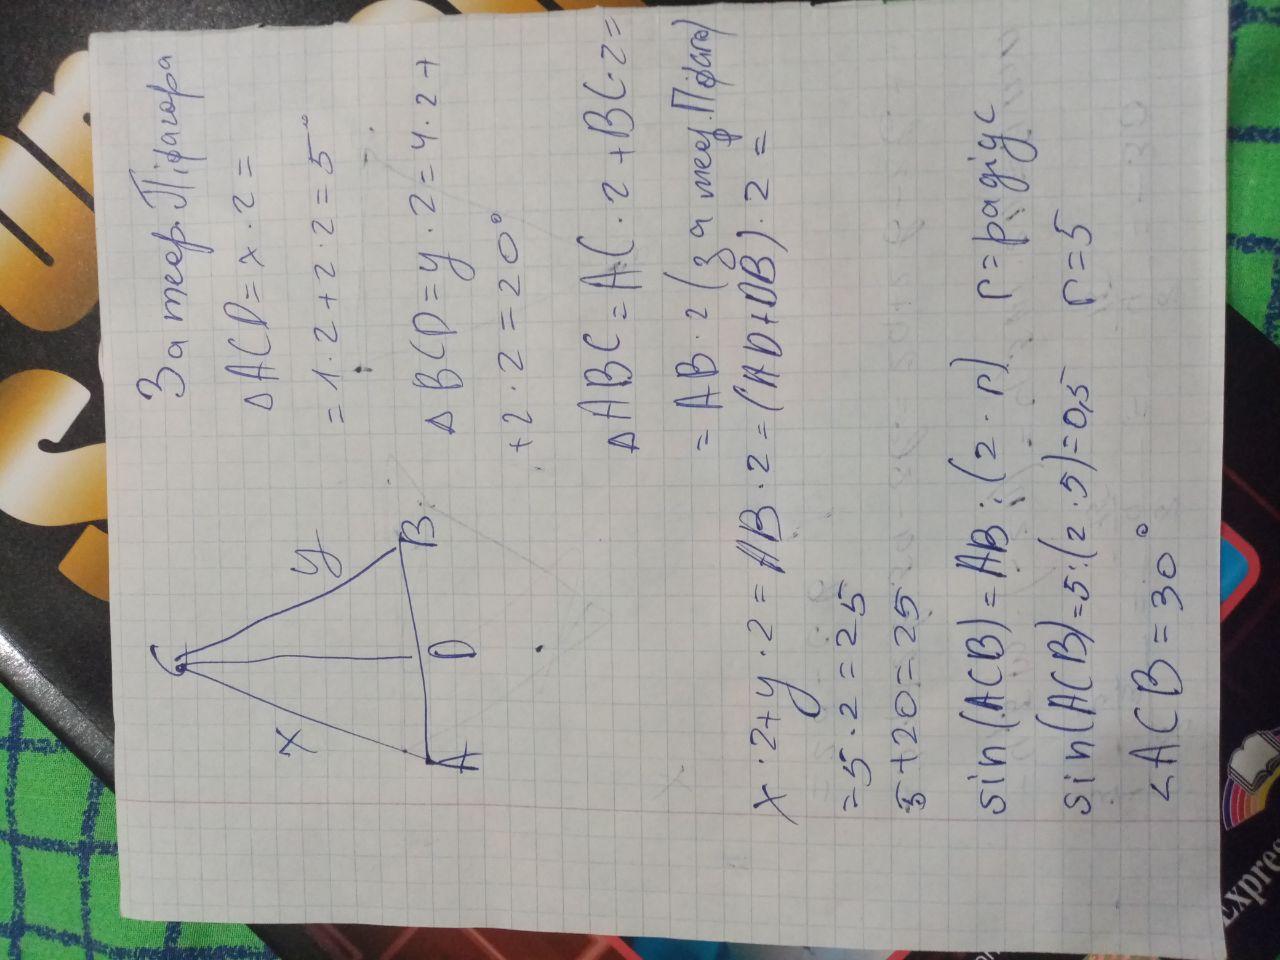 За теор. Піфагора
△ACD = x · 2 =
= 1 · 2 + 2 · 2 = 5°
△BCD = y · 2 = 4 · 2 +
+ 2 · 2 = 20°
△ABC = AC · 2 + BC · 2 =
= AB · 2 (за теор. Піфагор)
C
x
y
A
D
B
x · 2 + y · 2 = AB · 2 = (AD + DB) · 2 =
= 5 · 2 = 25
5 + 20 = 25
sin (ACB) = AB : (2 · r) r = радіус
sin (ACB) = 5 : (2 · 5) = 0,5 r = 5
∠ACB = 30°
Expres